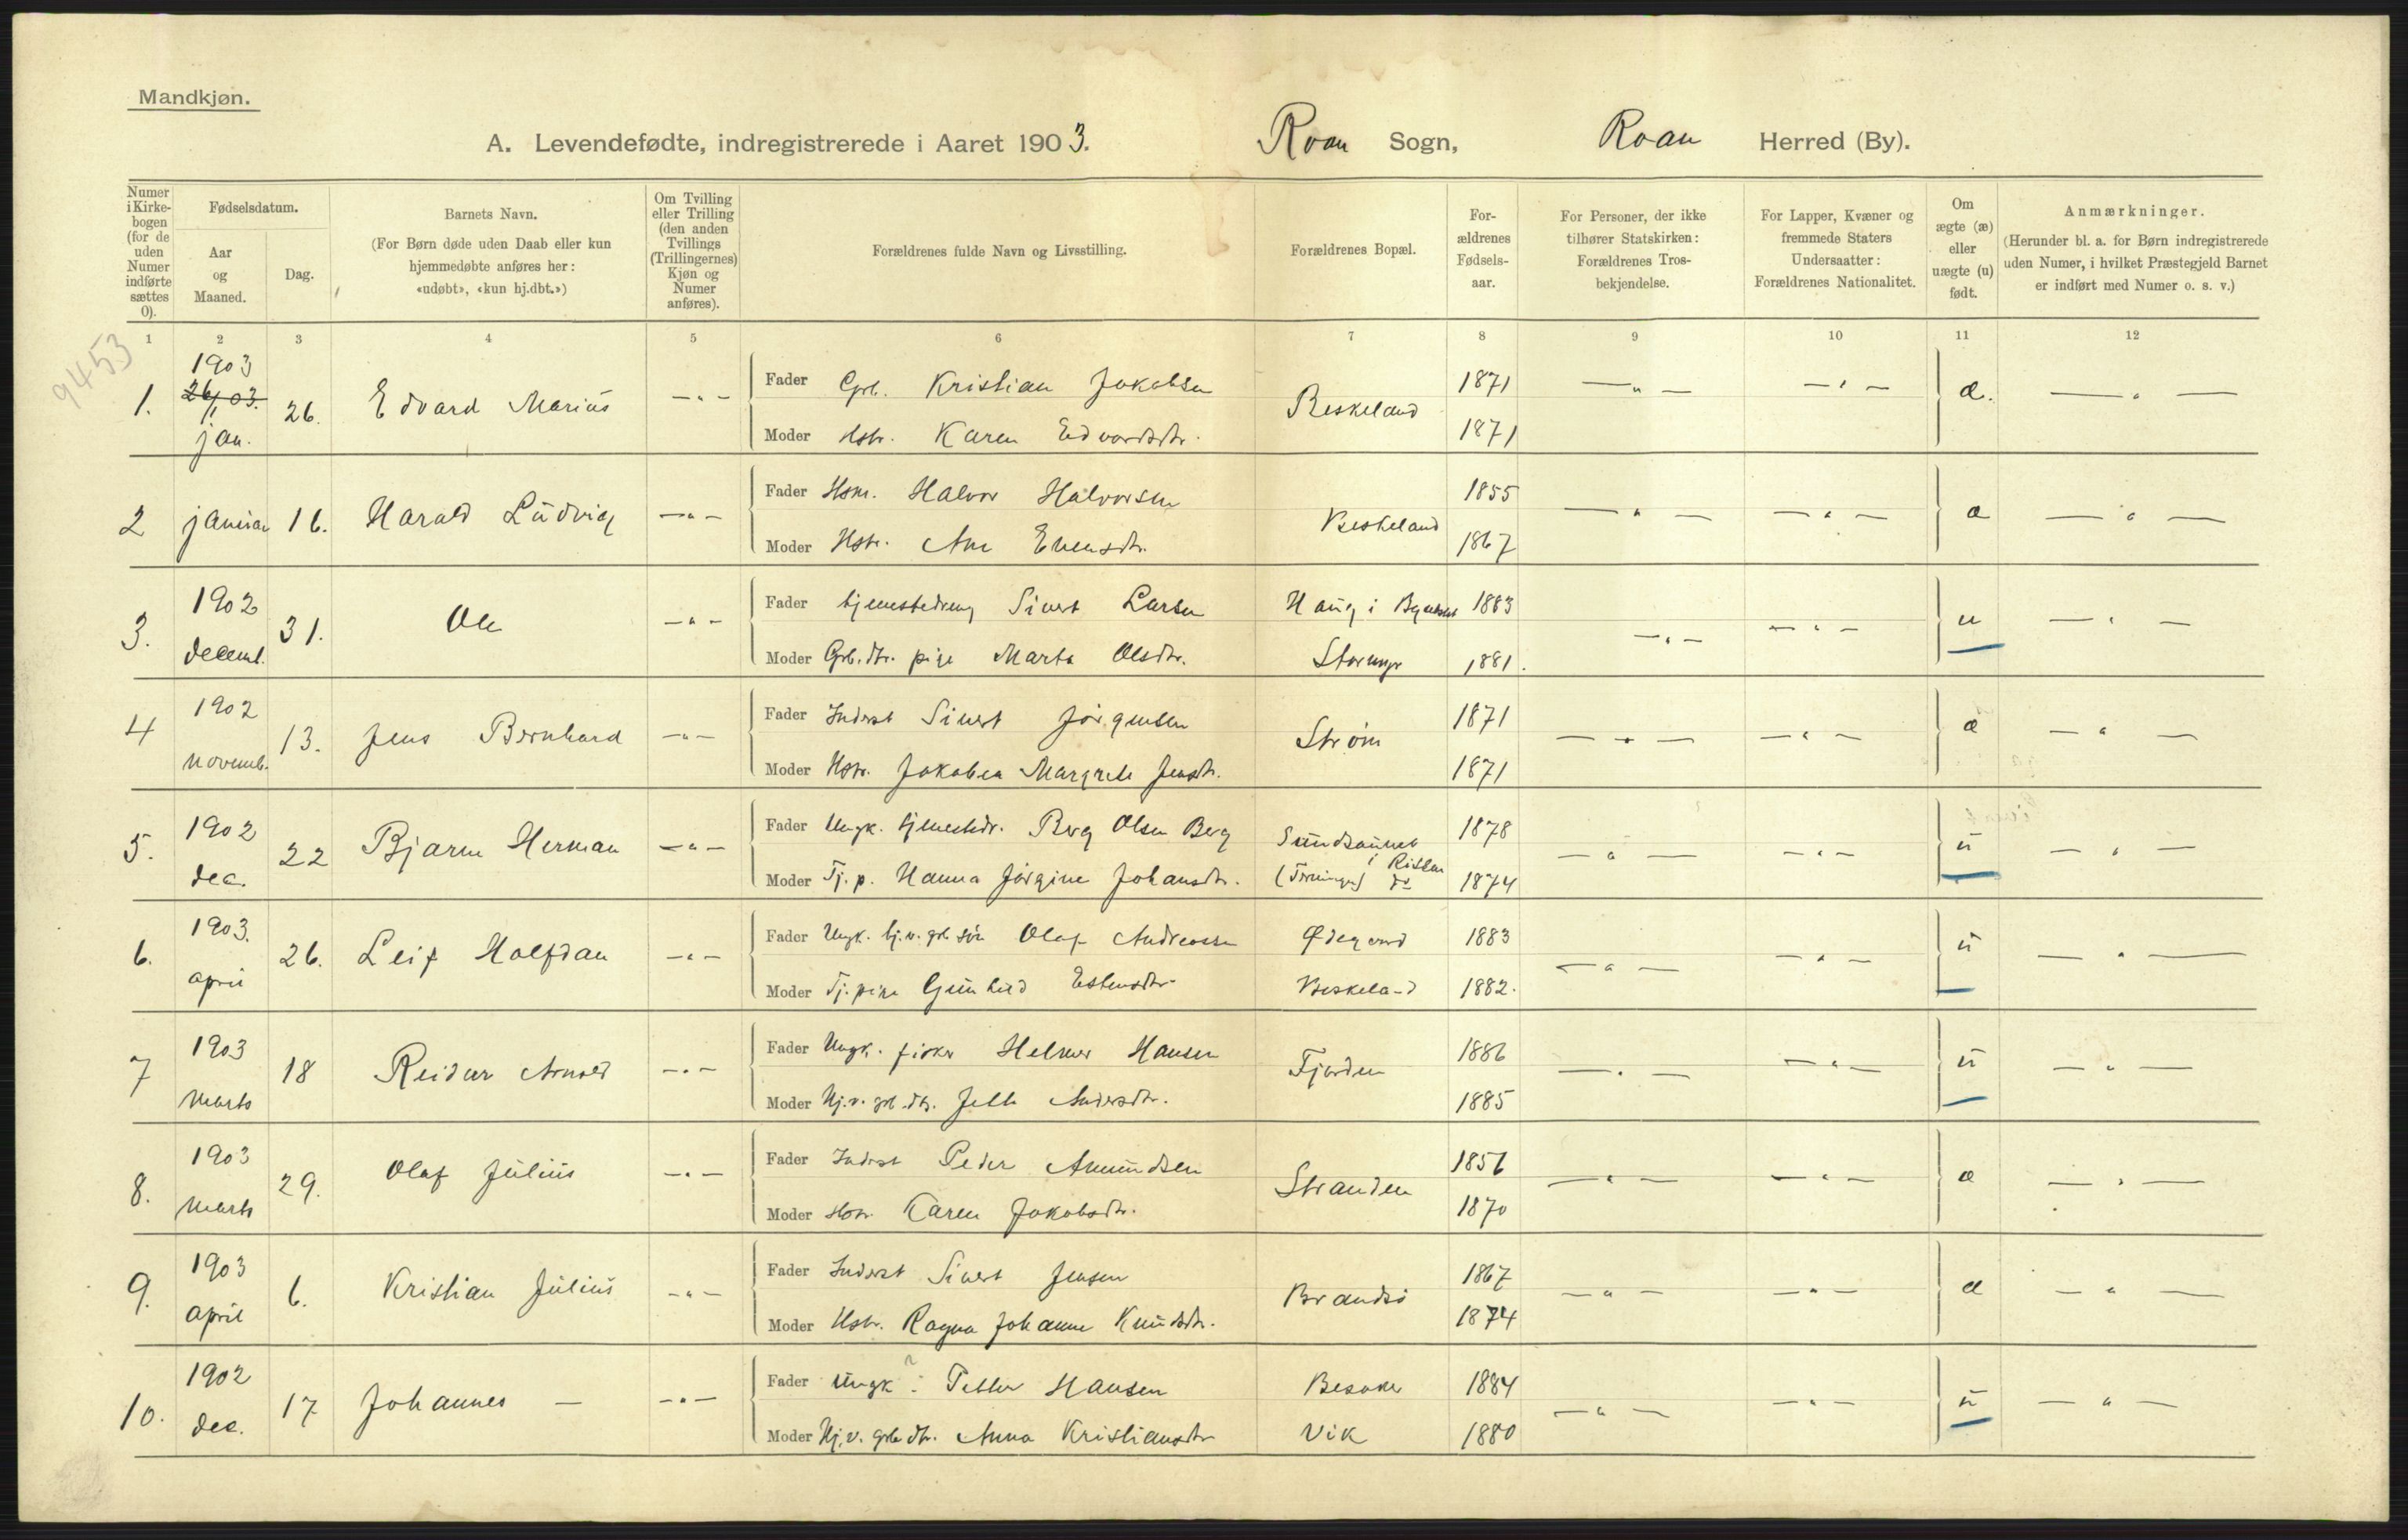 Mandkjøn.
A. Levendefødte, indregistrerede i Aaret 1903. Roan Sogn, Roan Herred (By).
Numer i Kirkebogen (for de uden Numer indførte sættes 0).
Fødselsdatum.
Aar og Maaned.
Dag.
Barnets Navn.
(For Børn døde uden Daab eller kun hjemmedøbte anføres her: «udøbt», «kun hj.dbt.»)
Om Tvilling eller Trilling (den anden Tvillings (Trillingernes) Kjøn og Numer anføres).
Forældrenes fulde Navn og Livsstilling.
Forældrenes Bopæl.
For-ældrenes Fødsels-aar.
For Personer, der ikke tilhører Statskirken: Forældrenes Tros-bekjendelse.
For Lapper, Kvæner og fremmede Staters Undersaatter: Forældrenes Nationalitet.
Om ægte (æ) eller uægte (u) født.
Anmærkninger.
(Herunder bl. a. for Børn indregistrerede uden Numer, i hvilket Præstegjeld Barnet er indført med Numer o. s. v.)
1 2 3 4 5 6 7 8 9 10 11 12
9453
1. 1903 26/1 03. jan. 26. Edvard Marius —"— Fader Grb. Kristian Jakobsen Beskeland 1871 —"— —"— æ. —"—
Moder Hstr. Karen Edvardsdtr. 1871
2 januar 16. Harald Ludvig —"— Fader Hsm. Halvor Halvorsen Beskeland 1855 —"— —"— æ —"—
Moder Hstr. Ane Evensdtr. 1867
3. 1902 decemb. 31. Ole —"— Fader tjenestedreng Sivert Larsen Haug i 1883 —"— —"— u —"—
Moder Grb.dtr. pige Marta Olsdtr. Stormyr 1881.
4 1902 novemb. 13. Jens Bernhard —"— Fader Inderst Sivert Jørgensen Strøm 1871 —"— —"— æ —"—
Moder Hstr. Jakobea Margrete Jensdtr. 1871
5. 1902 dec. 22 Bjarne Herman —"— Fader Ungk. tjenestedr. Berg Olsen Berg Sundsaunet i Rissen 1878 —"— —"— u —"—
Moder Tj.p. Hanna Jørgine Johansdtr. (Terningen) do 1874
6. 1903. april 26. Leif Halfdan —"— Fader Ungk. hj.v. grb søn Olaf Andreassen Ødegaard 1883 —"— —"— u —"—
Moder Tj.pige Gunhild Estensdtr Beskeland 1882.
7 1903 marts 18 Reidar Arnold —"— Fader Ungk. fisker Helmer Hansen Fjorden 1886 —"— —"— u —"—
Moder Hj.v. grb.dtr. Jette Andersdtr. 1885
8. 1903 marts 29. Olaf Julius —"— Fader Inderst Peder Amundsen Stranden 1856 —"— —"— æ —"—
Moder Hstr. Karen Jakobsdtr. 1870
9. 1903 april 6. Kristian Julius —"— Fader Inderst Sivert Jensen Brandsø 1867 —"— —"— æ —"—
Moder Hstr. Ragna Johanne Knudsdtr. 1874
10. 1902 dec. 17 Johannes — —"— Fader Ungk ? Petter Hansen Besaker 1884 —"— —"— u —"—
Moder Hj.v. grb dtr. Anna Kristiansdtr Vik 1880